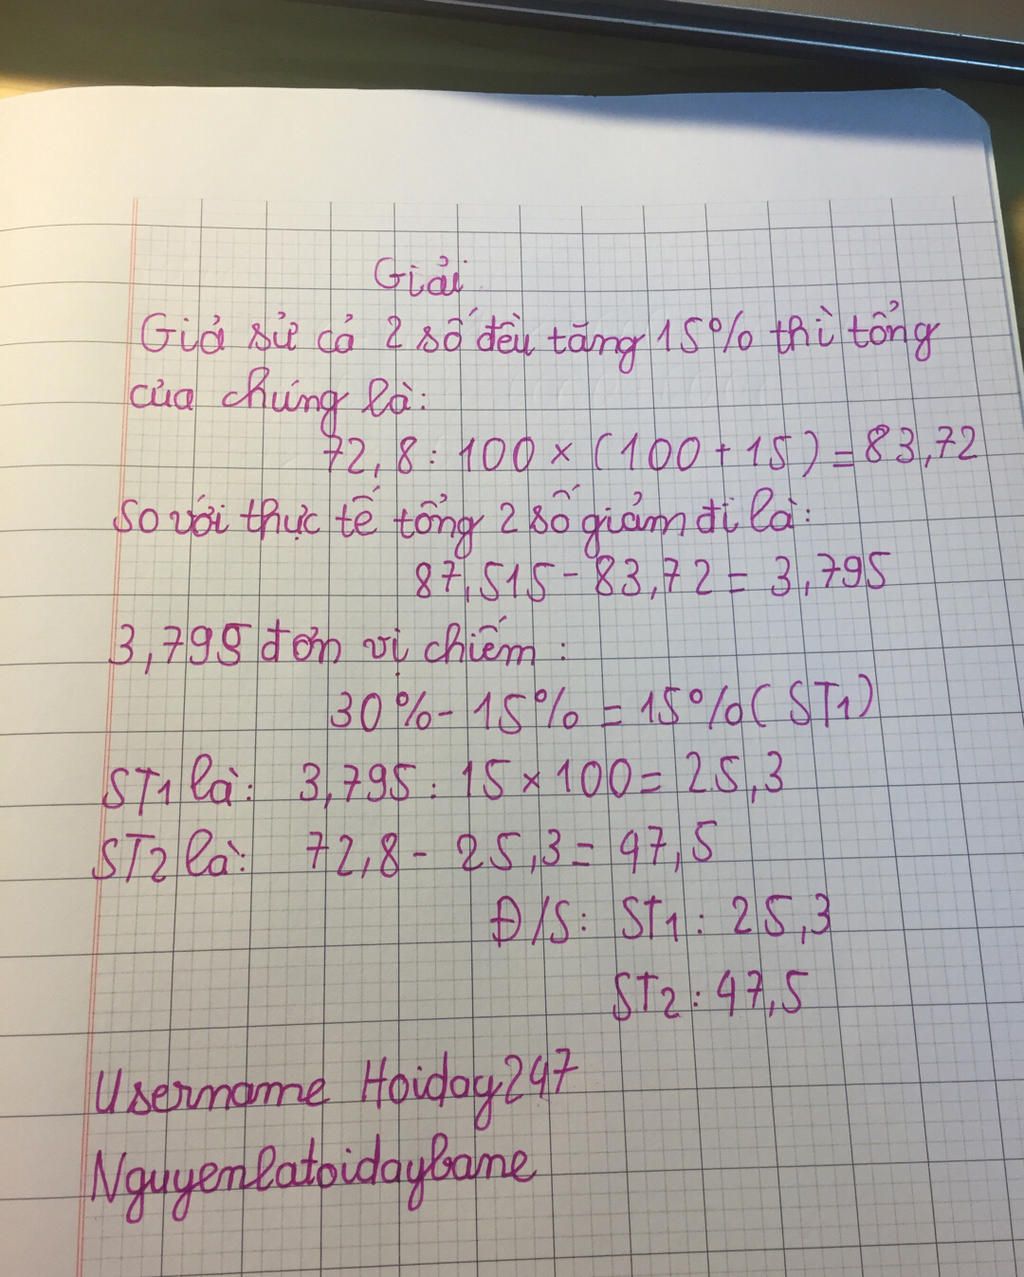 Giải
Giả sử cả 2 số đều tăng 15% thì tổng
của chúng là:
72,8 : 100 × (100 + 15) = 83,72
So với thực tế tổng 2 số giảm đi là:
87,515 - 83,72 = 3,795
3,795 đơn vị chiếm :
30% - 15% = 15% (ST1)
ST1 là: 3,795 : 15 × 100 = 25,3
ST2 là: 72,8 - 25,3 = 47,5
Đ/S: ST1 : 25,3
ST2 : 47,5
Username Hoiday247
Nguyenlatoidaybame